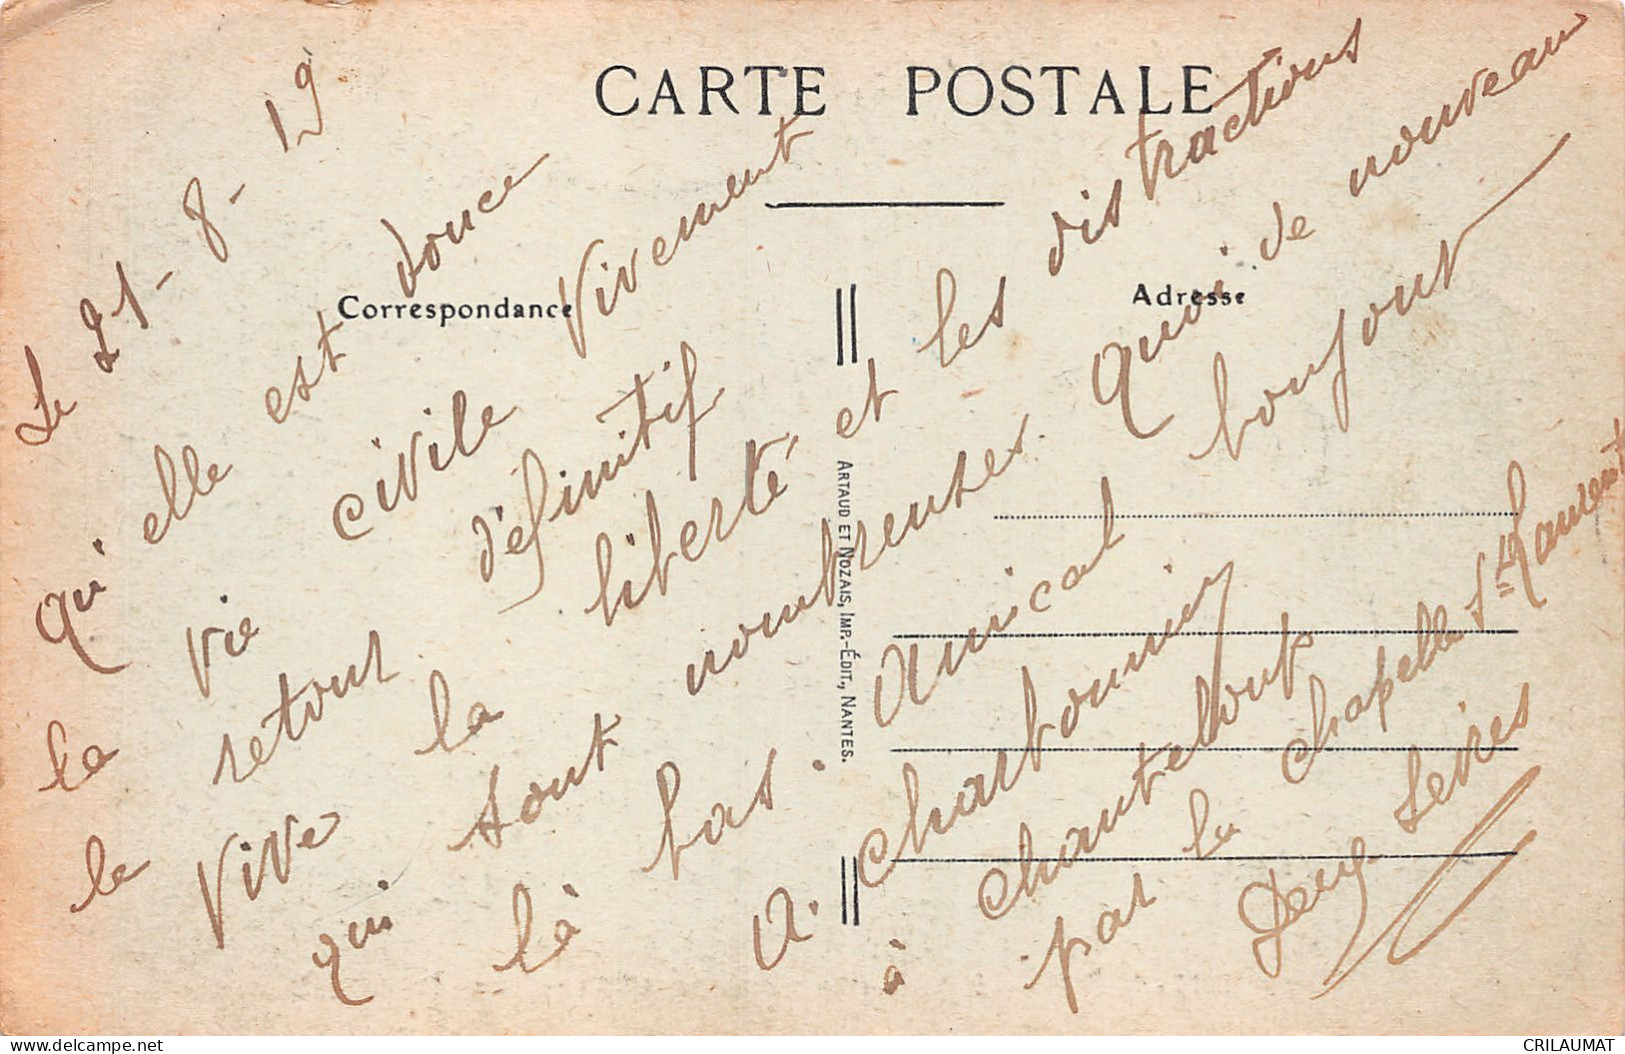 CARTE POSTALE
Correspondance
Adresse
ARTAUD ET NOZAIS, IMP.-ÉDIT., NANTES.
Le 21-8-19
Qu'elle est douce
la vie civile Vivement
le retour définitif
Vive la liberté et les distractions
qui sont nombreuses Quoi de nouveau
là bas. Amical bonjour
A. Charbonnier
à Chanteloup
par la Chapelle St Laurent
Deux Sèvres
CRILAUMAT